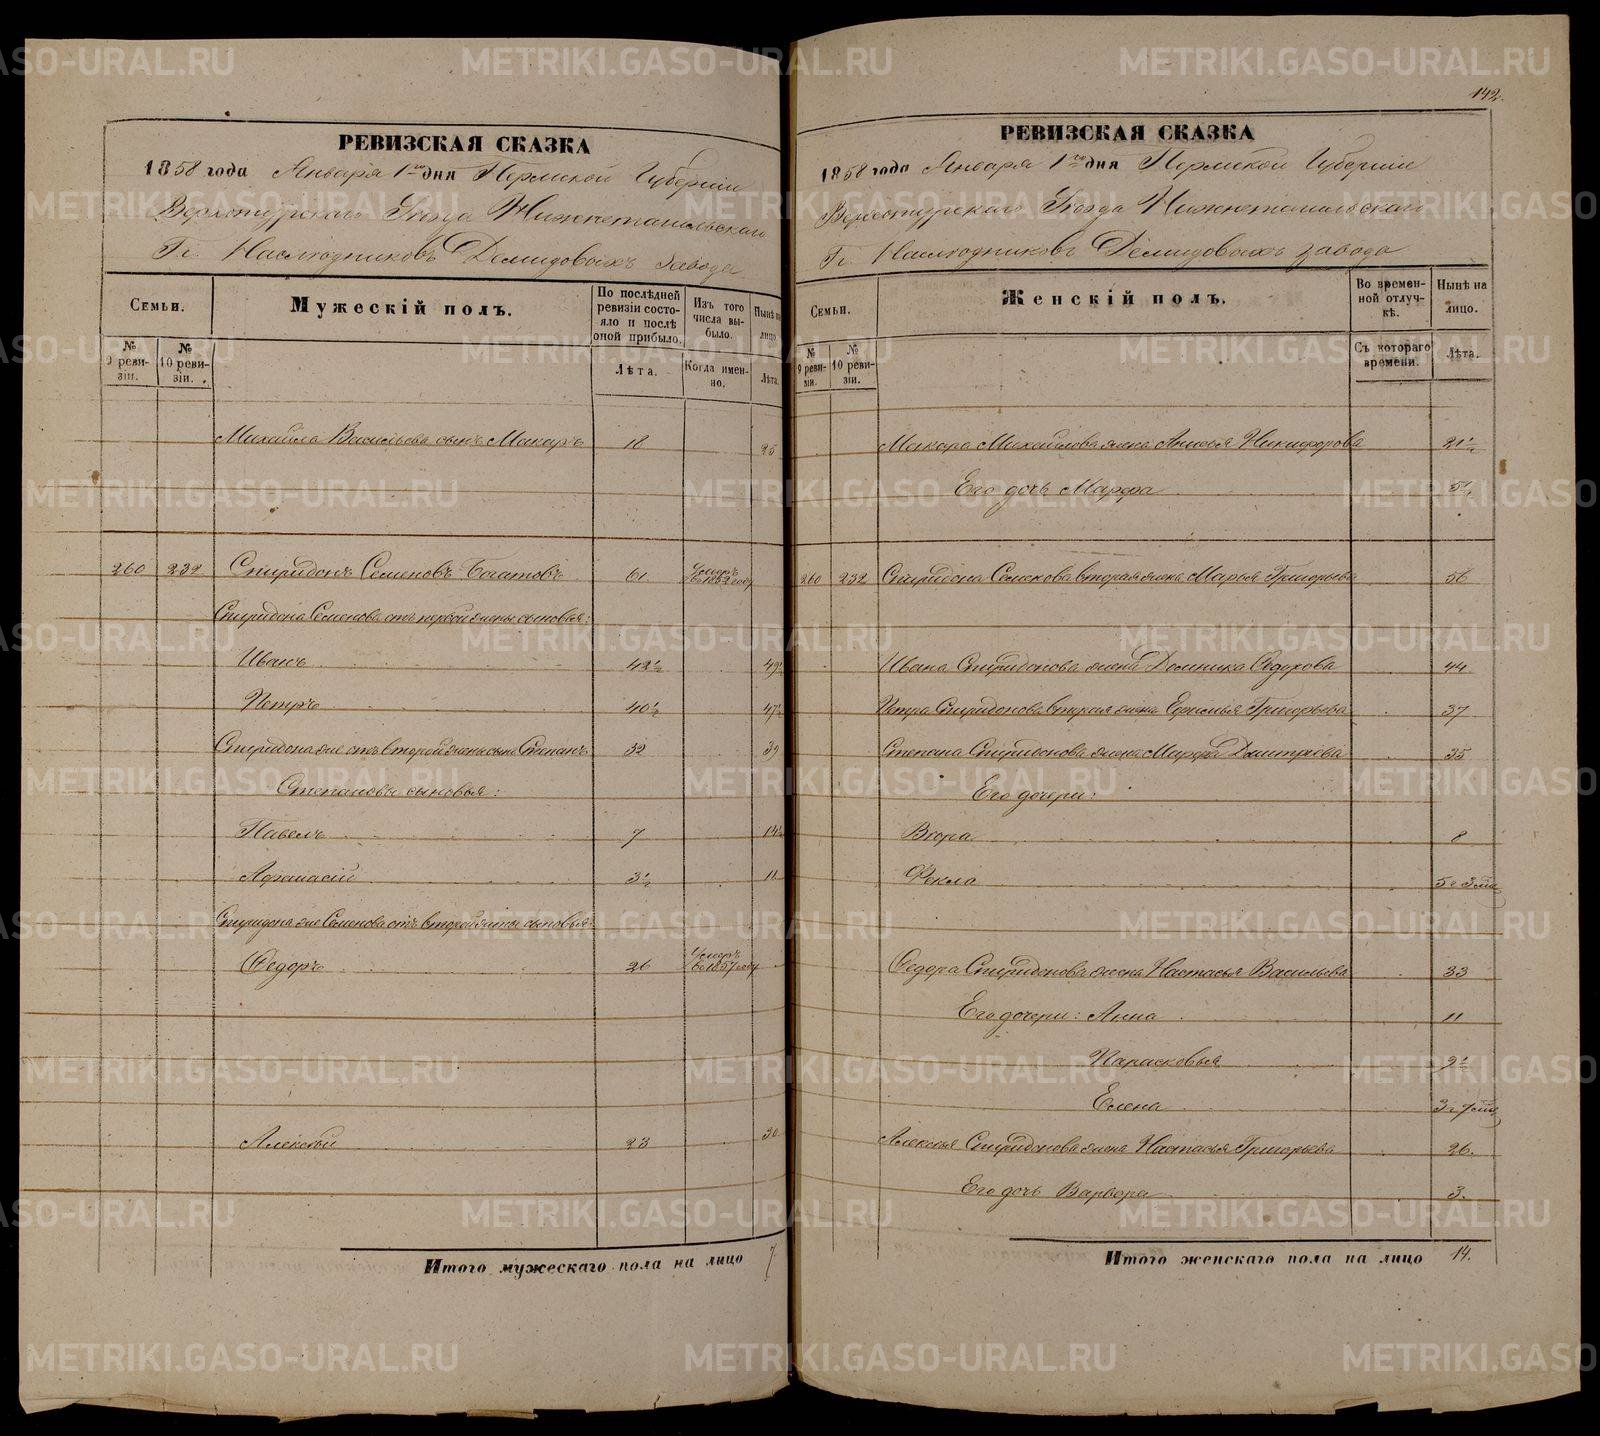 РЕВИЗСКАЯ СКАЗКА
1858 года Января 1го дня Пермской Губернiи
Верхотурскаго Уѣзда Нижнетагильскаго
Гг. Наслѣдниковъ Демидовыхъ завода
Семьи.
Мужескiй полъ.
По послѣдней ревизiи состояло и послѣ оной прибыло.
Изъ того числа выбыло.
Нынѣ на лицо
№ 9 ревизiи.
№ 10 ревизiи.
Лѣта.
Когда именно.
Лѣта.
Михайла Васильева сынъ Макаръ 18 25
260 232 Спиридонъ Семеновъ Богатовъ 61 Умеръ въ 1852 году
Спиридона Семенова отъ первой жены сыновья:
Иванъ 42½ 49½
Петръ 40½ 47½
Спиридона же отъ второй жены сынъ Степанъ 32 39
Степановы сыновья:
Павелъ 7 14½
Афанасiй 3½ 11
Спиридона же Семенова отъ второй жены сыновья:
Федоръ 26 Умеръ въ 1857 году
Алексѣй 23 30
Итого мужескаго пола на лицо 7
142.
РЕВИЗСКАЯ СКАЗКА
1858 года Января 1го дня Пермской Губернiи
Верхотурскаго Уѣзда Нижнетагильскаго
Гг. Наслѣдниковъ Демидовыхъ завода
Семьи.
Женскiй полъ.
Во временной отлучкѣ.
Нынѣ на лицо.
№ 9 ревизiи.
№ 10 ревизiи.
Съ котораго времени.
Лѣта.
Макара Михайлова жена Анисья Никифорова 21½
Его дочь Марфа
260 232 Спиридона Семенова вторая жена Марья Григорьева 56
Ивана Спиридонова жена Домника Федорова 44
Петра Спиридонова вторая жена Ефимья Григорьева 37
Степана Спиридонова жена Марфа Дмитрiева 35
Его дочери:
Вѣра 8
Фекла 5 г 3 мѣс
Федора Спиридонова жена Настасья Васильева 33
Его дочери: Анна 11
Парасковья 9½
Елена 3 г 7 мѣс
Алексѣя Спиридонова жена Настасья Григорьева 26.
Его дочь Варвара 3.
Итого женскаго пола на лицо 14.
METRIKI.GASO-URAL.RU